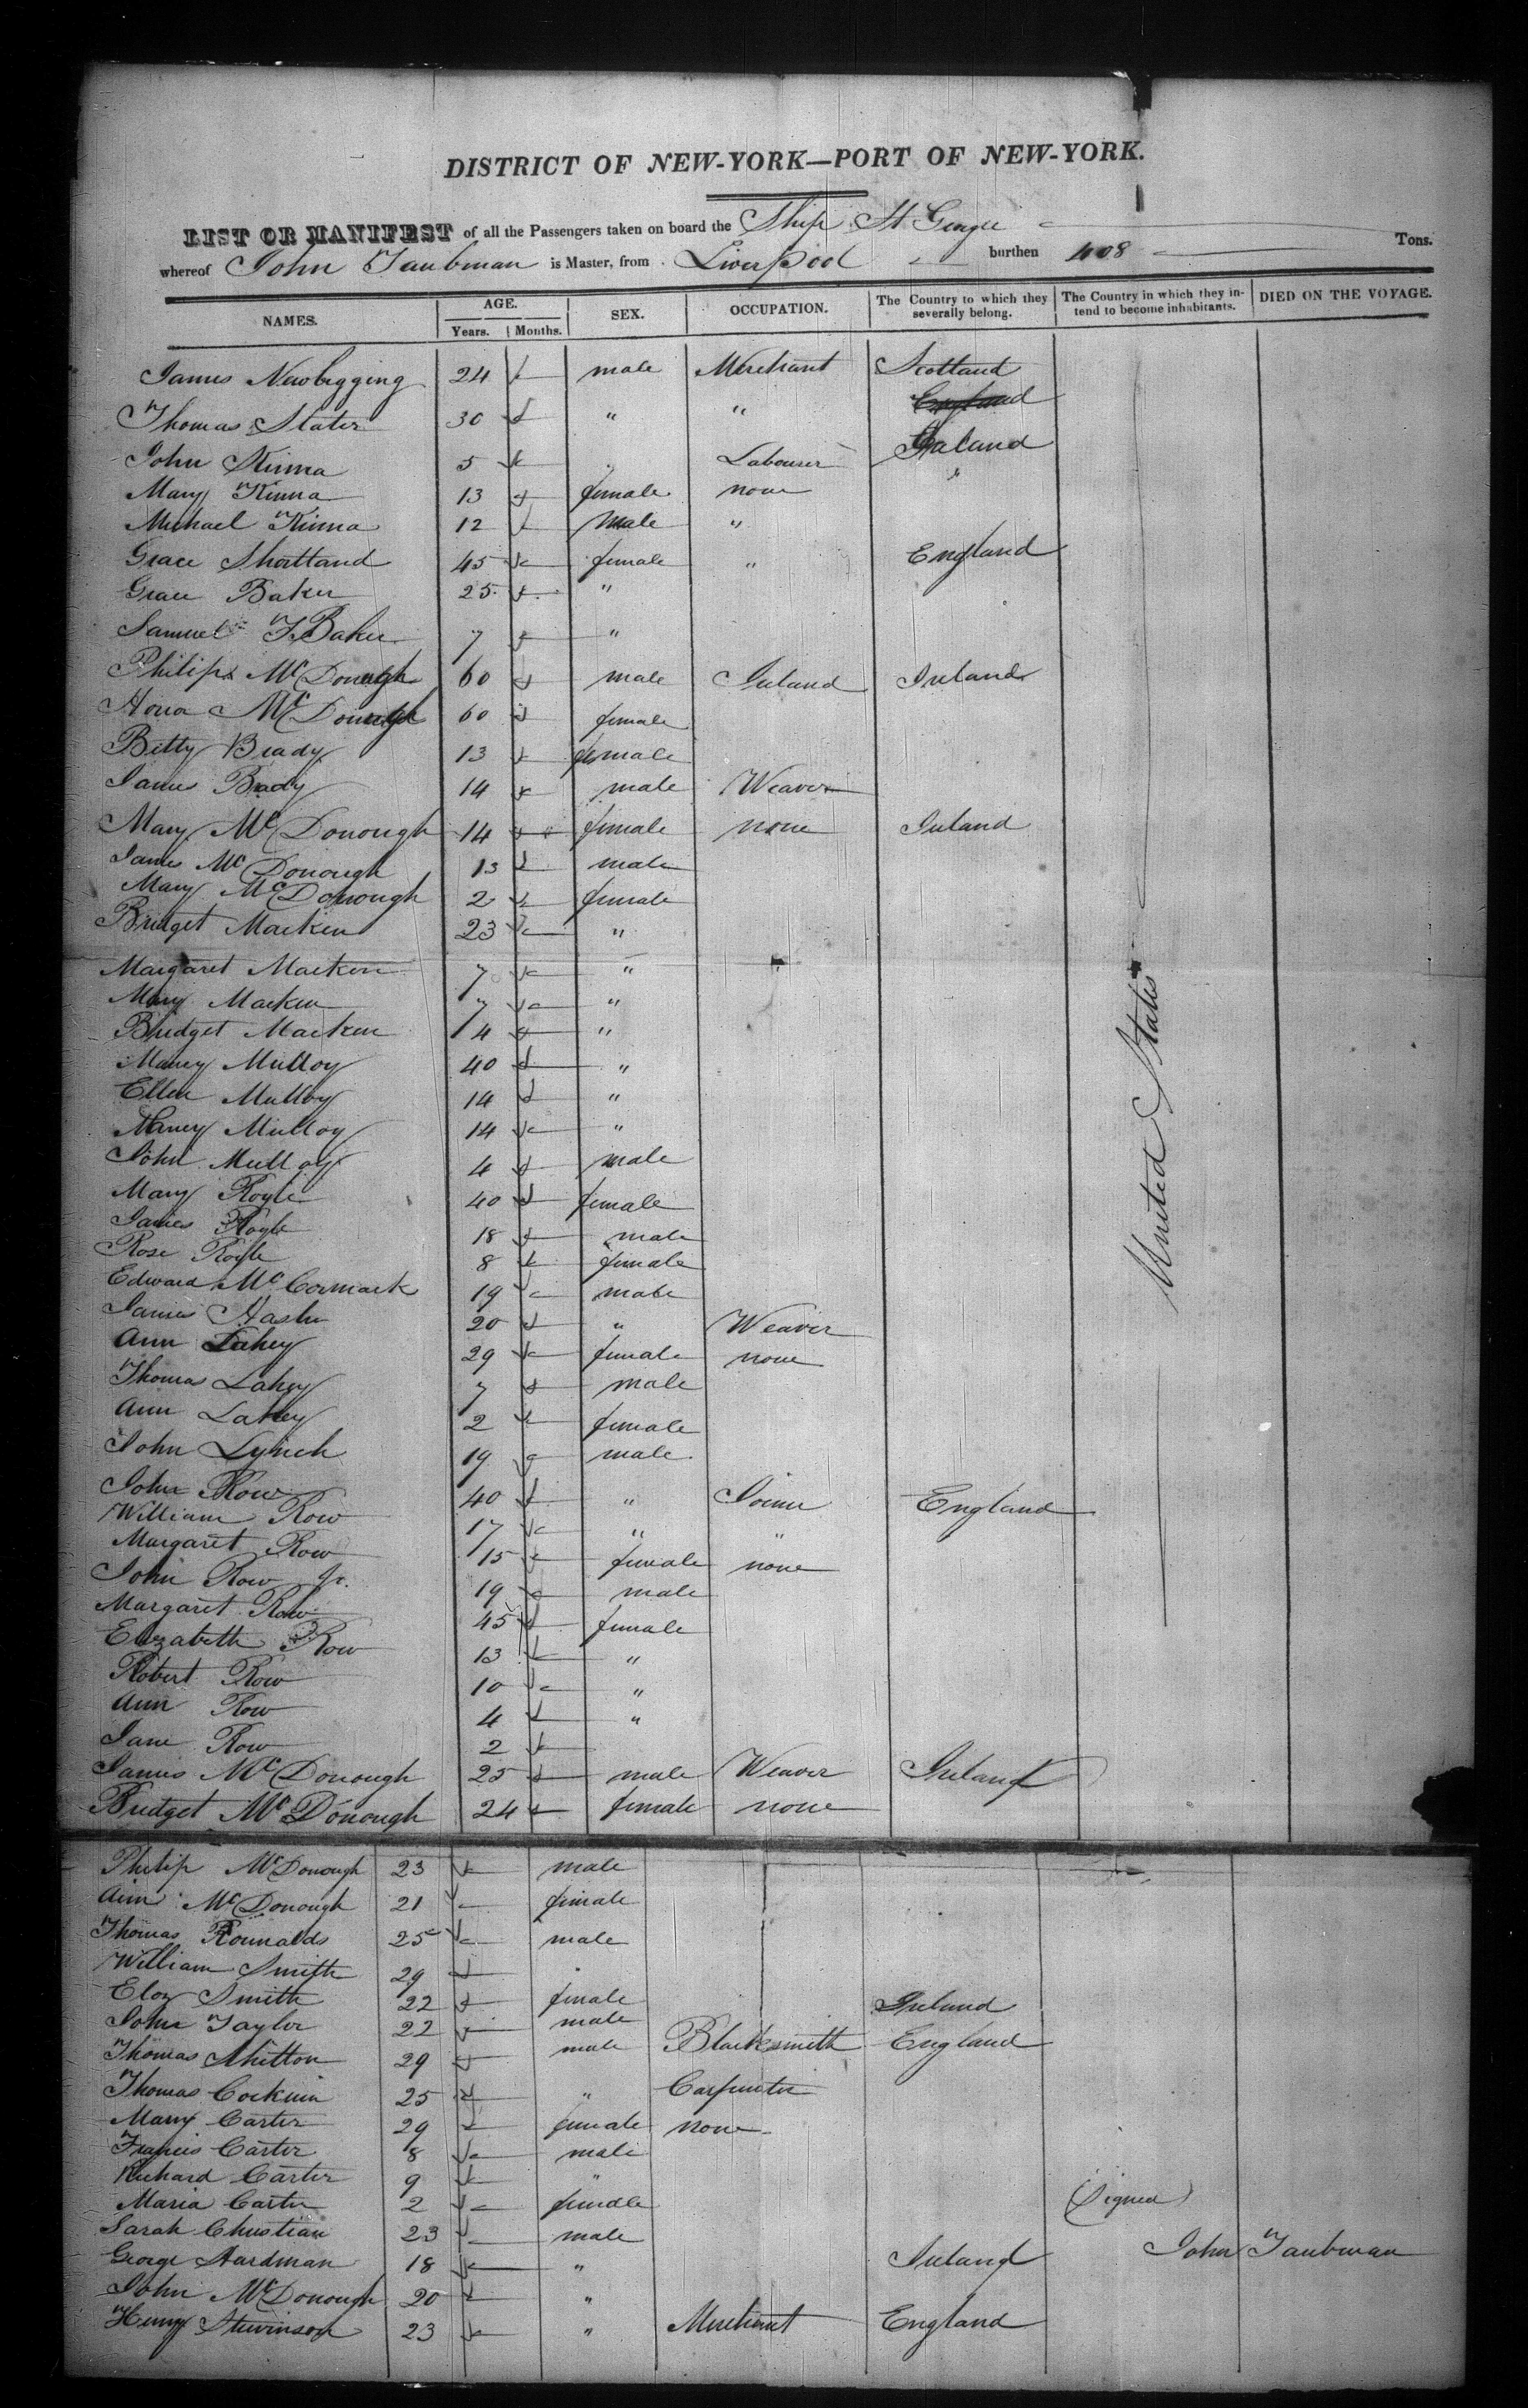 DISTRICT OF NEW-YORK—PORT OF NEW-YORK.
LIST OR MANIFEST of all the Passengers taken on board the Ship St George
whereof John Taubman is Master, from Liverpool burthen 408 Tons.
NAMES. AGE. Years. Months. SEX. OCCUPATION. The Country to which they severally belong. The Country in which they intend to become inhabitants. DIED ON THE VOYAGE.
James Newbigging 24 male Merchant Scotland
Thomas Slater 30 " " England
John Kinna 5 Labourer Ireland
Mary Kinna 13 female none "
Michael Kinna 12 Male "
Grace Shortland 45 female " England
Grace Baker 25 "
Samuel F. Baker 7 "
Philip McDonough 60 male Ireland Ireland
Hona McDonough 60 female
Betty Brady 13 female
James Brady 14 male Weaver
Mary McDonough 14 female none Ireland
James McDonough 13 male
Mary McDonough 2 female
Bridget Macken 23 "
Margaret Macken 7 "
Mary Macken 7 "
Bridget Macken 4 "
Mancy Mulloy 40 "
Ellen Mulloy 14 "
Mancy Mulloy 14 "
John Mulloy 4 male
Mary Royle 40 female
James Royle 18 male
Rose Royle 8 female
Edward McCormack 19 male
James 20 " Weaver
Ann Lahey 29 female none
Thomas Lahey 7 male
Ann Lahey 2 female
John Lynch 19 male
John Row 40 " Joiner England
William Row 17 " "
Margaret Row 15 female none
John Row Jr. 19 male
Margaret Row 45 female
Elizabeth Row 13 "
Robert Row 10 "
Ann Row 4 "
Jane Row 2
James McDonough 25 male Weaver Ireland
Bridget McDonough 24 female none
United States
Philip McDonough 23 male
Ann McDonough 21 female
Thomas Rounalds 25 male
William Smith 29 "
Eloz Smith 22 female Ireland
John Taylor 22 male
Thomas Shitton 29 male Blacksmith England
Thomas Cockuin 25 " Carpenter
Mary Carter 29 female none
Francis Carter 8 male
Richard Carter 9 "
Maria Carter 2 female
Sarah Christian 23 male
George Hardman 18 " Ireland
John McDonough 20 "
Henry Stevinson 23 " Merchant England
(Signed)
John Taubman